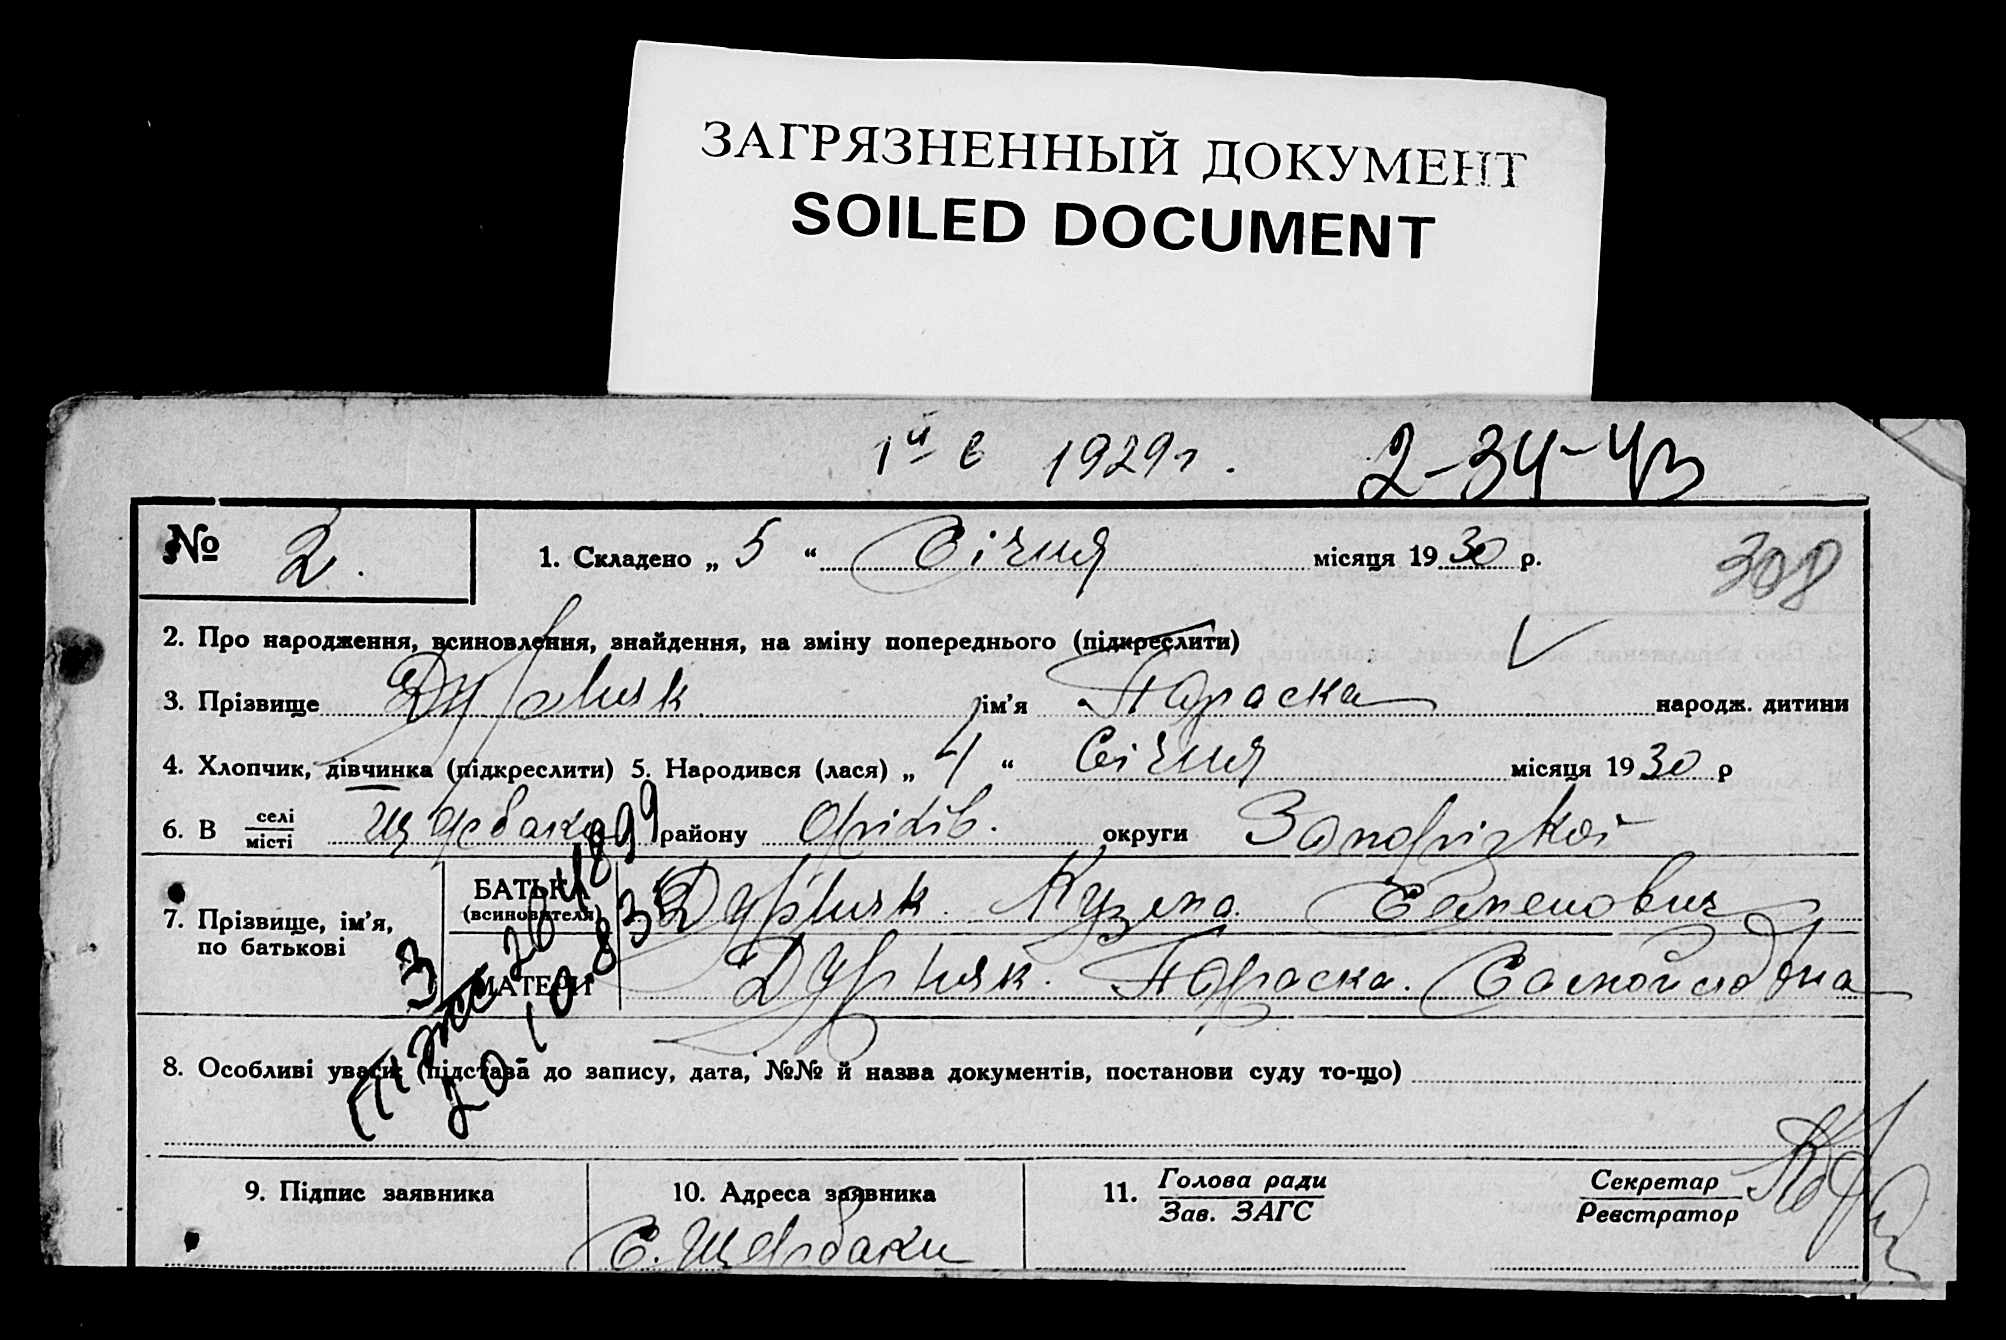 ЗАГРЯЗНЕННЫЙ ДОКУМЕНТ
SOILED DOCUMENT
1й в 1929 г. 2-34-43
№ 2. 1. Складено „ 5 “ Січня місяця 1930 р. 308
2. Про народження, всиновлення, знайдення, на зміну попереднього (підкреслити)
3. Прізвище ім'я Параска народж. дитини
4. Хлопчик, дівчинка (підкреслити) 5. Народився (лася) „ 4 “ Січня місяця 1930 р
6. В селі місті Щербаки району Оріхів. округи Запорізкої
7. Прізвище, ім'я, по батькові
БАТЬКА (всиновителя) Кузьма Семенович
МАТЕРИ Параска. Самойловна
8. Особливі уваги: (підстава до запису, дата, №№ й назва документів, постанови суду то-що)
9. Підпис заявника 10. Адреса заявника 11. Голова ради Зав. ЗАГС Секретар Реєстратор
С. Щербаки